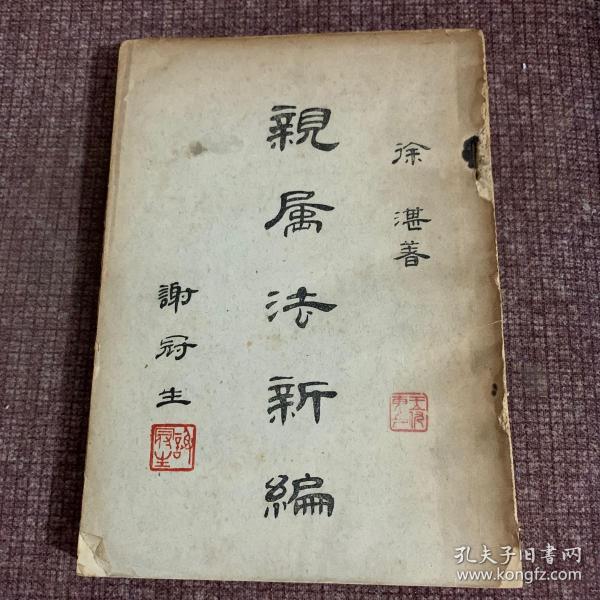 徐湛著
親属法新編
謝冠生
謝冠生
孔夫子旧書网
www.kongfz.com